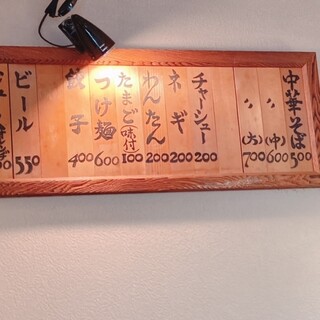 中華そば 500
〃 (中) 600
〃 (大) 700
チャーシュー 200
ネギ 200
わんたん 200
たまご(味付) 100
つけ麺 600
餃子 400
ビール 550